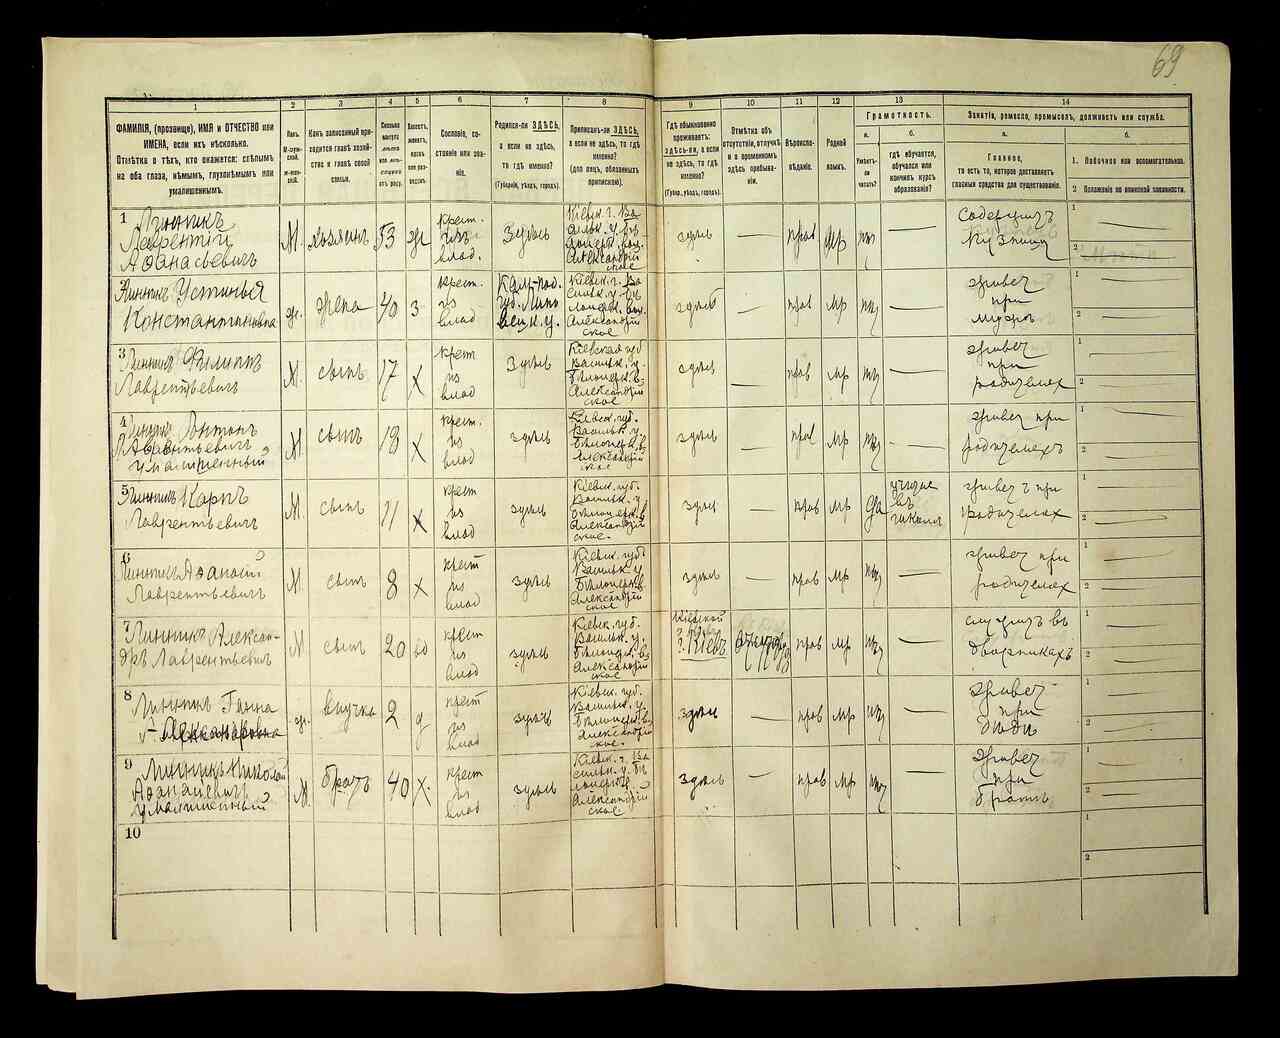 69
1
2
3
4
5
6
7
8
9
10
11
12
13
14
ФАМИЛІЯ, (прозвище), ИМЯ и ОТЧЕСТВО или
ИМЕНА, если ихъ нѣсколько.
Отмѣтка о тѣхъ, кто окажется: слѣпымъ
на оба глаза, нѣмымъ, глухонѣмымъ или
умалишеннымъ.
Полъ.
М-муж-
ской.
Ж-жен-
скій.
Какъ записанный при-
ходится главѣ хозяй-
ства и главѣ своей
семьи.
Сколько
минуло
лѣтъ
или мѣ-
сяцевъ
отъ роду.
Холостъ,
женатъ,
вдовъ
или раз-
веденъ.
Сословіе, со-
стояніе или зва-
ніе.
Родился-ли ЗДѢСЬ,
а если не здѣсь,
то гдѣ именно?
(Губернія, уѣздъ, городъ).
Приписанъ-ли ЗДѢСЬ,
а если не здѣсь, то гдѣ
именно?
(для лицъ, обязанныхъ
припискою).
Гдѣ обыкновенно
проживаетъ:
здѣсь-ли, а если
не здѣсь, то гдѣ
именно?
(Губер., уѣздъ, городъ).
Отмѣтка объ
отсутствіи, отлучкѣ
и о временномъ
здѣсь пребыва-
ніи.
Вѣроиспо-
вѣданіе.
Родной
языкъ.
Грамотность.
а.
Умѣетъ-
ли
читать?
б.
гдѣ обучается,
обучался или
кончилъ курсъ
образованія?
Занятіе, ремесло, промыселъ, должность или служба.
а.
Главное,
то есть то, которое доставляетъ
главныя средства для существованія.
б.
1. Побочное или вспомогательное.
2 Положеніе по воинской повинности.
1
Линникъ
Лаврентій
Афанасьевичъ
М. хозяинъ 53 ж
крест.
изъ
влад.
Здѣсь
Кіевск. г. Ва
сильк. у. Бѣ
лоцерк. вол.
Александрій
ское
здѣсь — прав мр —
Содержитъ
Кузницу
1
2
2
Линникъ Устинья
Константиновна
ж. жена 40 з
крест.
из
влад
губ. Липо
вецк. у.
Кіевск. г. Ва
сильк. у. Бѣ
лоцерк. вол.
Александрій
ское
здѣсь — прав мр —
живет
при
мужѣ
1
2
3
Линник Филиппъ
Лаврентьевичъ
М. сынъ 17 х
крест
из
влад
Здѣсь
Кіевская губ
Васильк. у.
Бѣлоцерк. в.
Александрій
ское
здѣсь — прав мр —
живет
при
родителях
1
2
4
Линник
Лаврентьевичъ
умалишенный
М. сынъ х
крест.
из
влад
здѣсь
Кіевск. губ.
Васильк. у.
Бѣлоцерк. в.
Александрій
ское
здѣсь — прав мр —
живет при
родителехъ
1
2
5
Линникъ Карпъ
Лаврентьевичъ
М. сынъ 11 х
крест
из
влад
здѣсь
Кіевск. губ.
Васильк. у
Бѣлоцерк. в
Александрій
ское.
здѣсь — прав мр да
учится
въ
школѣ
живет при
родителях
1
2
6
Линник Афанасій
Лаврентьевичъ
М. сынъ 8 х
крест
из
влад
здѣсь
Кіевск. губ
Васильк. у
Бѣлоцерк. в.
Александрій
ское
здѣсь — прав мр —
живет при
родителех
1
2
7
Линникъ Алексан-
дръ Лаврентьевич
М сынъ 20
крест
из
влад
здѣсь
Кіевск. губ.
Васильк. у.
Бѣлоцерк. в.
Александрій
ское
Кіевской
г. Кіевъ
прав мр —
служитъ въ
дворникахъ
1
2
8
Линник Ганна
Александровна
ж. внучка 2 д
крест
из
влад
здѣсь
Кіевск. губ.
Васильк. у.
Бѣлоцерк. в.
Александрій
ское.
здѣсь — прав мр —
живет
при
1
2
9
Линникъ Николай
Афанасіевич
умалишенный
М. братъ 40 х.
крест
из
влад
здѣсь
Кіевск. г. Ва
сильк. у. Бѣ
лоцерков.
Александрій
ское.
здѣсь — прав мр —
живет
при
братѣ
1
2
10
1
2